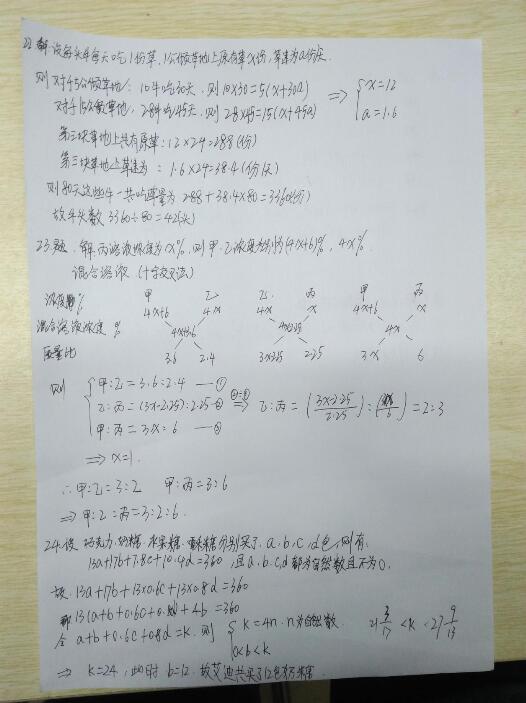 22. 解 设每头牛每天吃1份草, 1公顷草地上原有草x份, 草速为a份/天.
则对于5公顷草地: 10牛吃30天. 则10×30=5(x+30a)
对于15公顷草地, 28牛吃45天. 则 28×45=15(x+45a)
⇒ { x=12
a=1.6
第三块草地上共有原草: 12×24=288(份)
第三块草地上草速为: 1.6×24=38.4(份/天)
则80天这些牛一共吃草量为 288+38.4×80=3360(份)
故牛头数 3360÷80=42(头)
23题. 解. 丙溶液浓度为x%, 则甲.乙浓度分别为(4x+6)%, 4x%.
混合溶液 (十字交叉法)
浓度% 甲 乙 乙 丙 甲 丙
4x+6 4x 4x x 4x+6 x
混合溶液浓度 % 4x+3.6 4x
质量比 3.6 2.4 3x-2.25 2.25 3x 6
则 { 甲:乙=3.6:2.4 —①
乙:丙=(3x-2.25):2.25 —②
甲:丙=3x:6 —③
⇒ 乙:丙 = (3x-2.25/2.25) = 2:3
⇒ x=1.
∴甲:乙=3:2 甲:丙=3:6
⇒ 甲:乙:丙=3:2:6.
24. 设 巧克力.奶糖.水果糖. 分别买了.a.b.c.d包, 则有:
13a+17b+7.8c+10.4d=360, 且a.b.c.d都为自然数且不为0.
故 13a+17b+13×0.6c+13×0.8d=360
即 13(a+b+0.6c+0.8d)+4b=360
令 a+b+0.6c+0.8d=k. 则 { k=4n. n为自然数. 21 3/17 <k< 27 9/13
0<b<k
⇒ k=24, 此时 b=12. 故艾迪共买了12包奶糖.